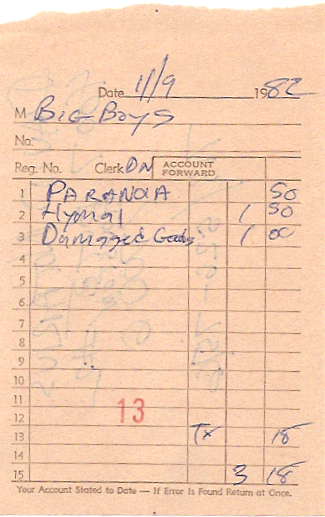 Date 11/9 1982
M Big Boys
No.
Reg. No. Clerk DN ACCOUNT FORWARD
1 PARANOIA 50
2 Hymal 1 50
3 Damaged Goods 1 00
4
5
6
7
8
9
10
11
12 13
13 Tx 18
14
15 3 18
Your Account Stated to Date — If Error Is Found Return at Once.